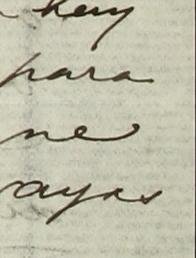 hay
para
ne
ayas